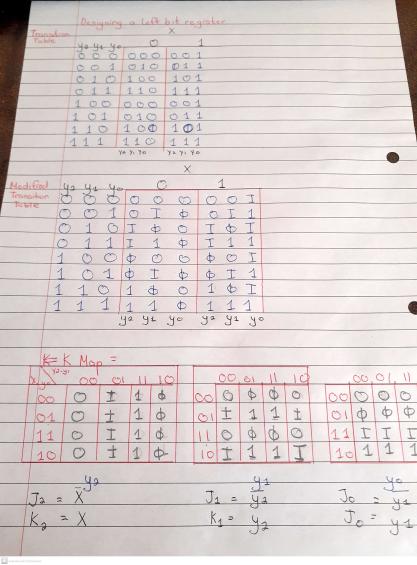 Designing a left bit register
X
Transition Table
0 1
y2 y1 y0
0 0 0 0 0 0 0 0 1
0 0 1 0 1 0 0 1 1
0 1 0 1 0 0 1 0 1
0 1 1 1 1 0 1 1 1
1 0 0 0 0 0 0 0 1
1 0 1 0 1 0 0 1 1
1 1 0 1 0 0 1 0 1
1 1 1 1 1 0 1 1 1
y2 y1 y0 y2 y1 y0
X
Modified Transition Table
y2 y1 y0 0 1
0 0 0 0 0 0 0 0 I
0 0 1 0 I φ 0 I 1
0 1 0 I φ 0 I φ I
0 1 1 I 1 φ I 1 1
1 0 0 φ 0 0 φ 0 I
1 0 1 φ I φ φ I 1
1 1 0 1 φ 0 1 φ I
1 1 1 1 1 φ 1 1 1
y2 y1 y0 y2 y1 y0
K Map =
y2-y1
00 01 11 10 00 01 11 10 00 01 11
00 0 I 1 φ 00 0 φ φ 0 00 0 0 0
01 0 I 1 φ 01 I 1 1 I 01 φ φ φ
11 0 I 1 φ 11 0 φ φ 0 11 I I I
10 0 I 1 φ 10 I 1 1 I 10 1 1 1
y2 y1 y0
J2 = X J1 = y2 J0 = y1
K2 = X K1 = y2 J0 = y1